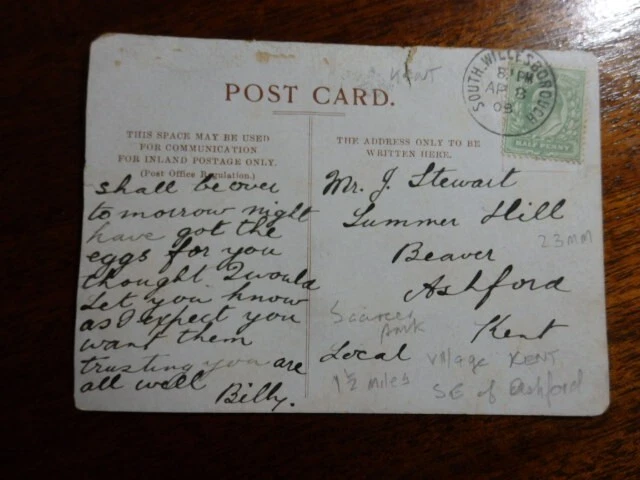 KENT
POST CARD.
SOUTH WILLESBOROUGH
8.1 PM
AP 8
09
HALF PENNY
THIS SPACE MAY BE USED
FOR COMMUNICATION
FOR INLAND POSTAGE ONLY.
(Post Office Regulation.)
THE ADDRESS ONLY TO BE
WRITTEN HERE.
shall be over
to morrow night
have got the
eggs for you
thought I would
Let you know
as I expect you
want them
trusting you are
all well
Billy.
Mr. J. Stewart
Summer Hill
Beaver
Ashford
Kent
Local
23mm
Scarcer
1½ miles
Village KENT
SE of Ashford